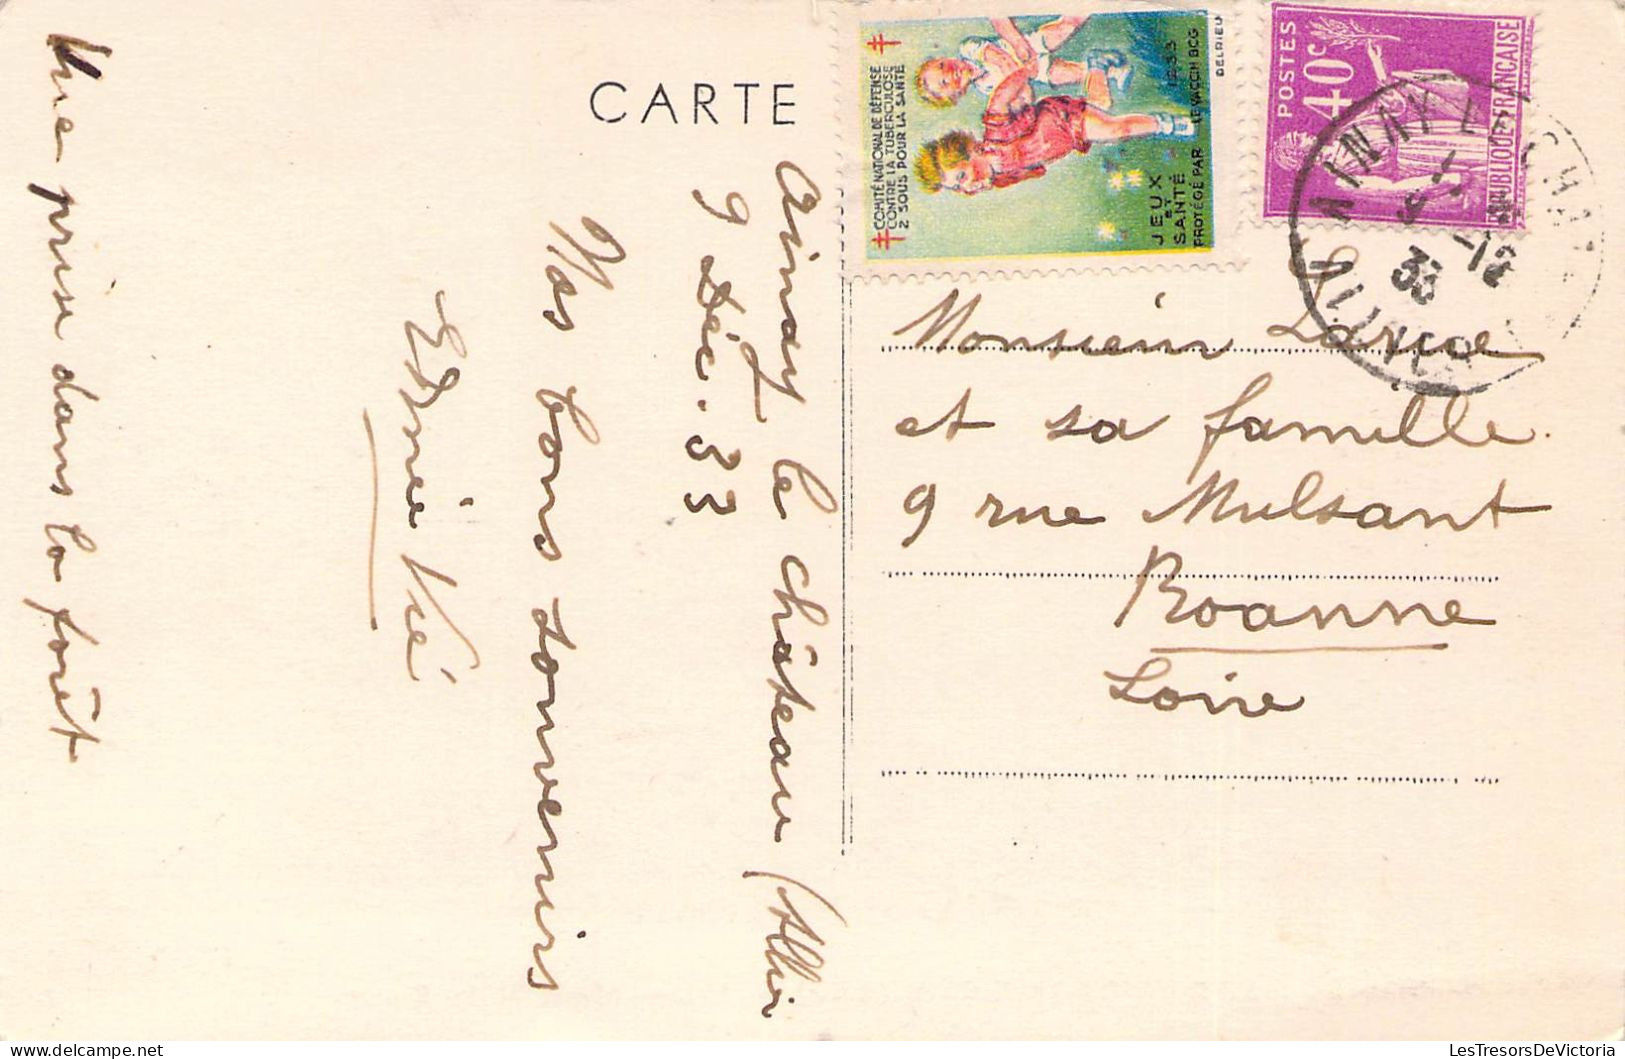 CARTE
Ainay le château (Allier
9 Déc. 33
Nos bons souvenirs
Vié
Vue prise dans la forêt
COMITÉ NATIONAL DE DÉFENSE
CONTRE LA TUBERCULOSE
2 SOUS POUR LA SANTÉ
JEUX
ET
SANTÉ 1933
PROTÉGÉ PAR LE VACCIN BCG
DELRIEU
POSTES
40c
REPUBLIQUE FRANCAISE
AINAY LE CHAT
9
-12
33
Monsieur
et sa famille
9 rue Mulsant
Roanne
Loire
LesTresorsDeVictoria